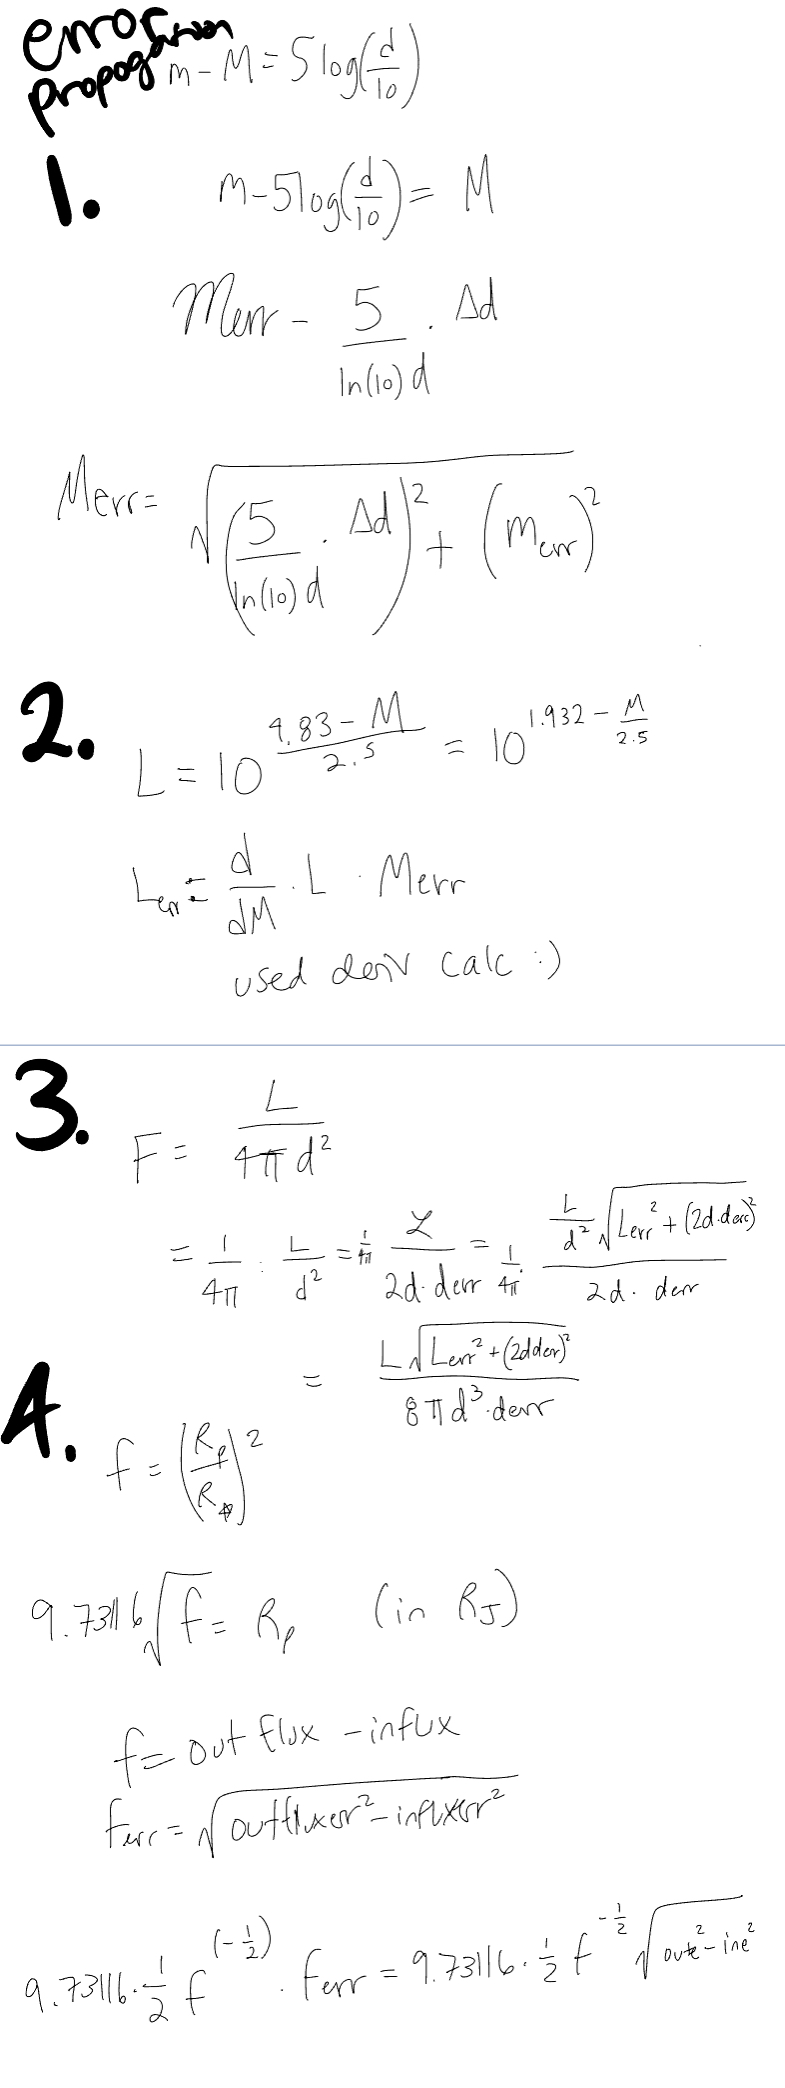 error
propogation
m - M = 5 log(d/10)
1.
m - 5log(d/10) = M
Merr - 5/(ln(10) d) · Δd
Merr = √((5/(ln(10) d) · Δd)² + (merr)²)
2.
L = 10^((4.83 - M)/2.5) = 10^(1.932 - M/2.5)
Lerr = d/dM · L · Merr
used deriv calc :)
3.
F = L/(4π d²)
= 1/4π · L/d² = 1/4π L/(2d · derr) = 1/4π · (L/d² √(Lerr² + (2d·derr)²))/(2d · derr)
= L√(Lerr² + (2dderr)²)/(8πd³·derr)
4.
f = (Rp/R*)²
9.73116√f = Rp (in RJ)
f = out flux - influx
ferr = √(outfluxerr² - influxerr²)
9.73116·½ f^(-½) · ferr = 9.73116·½ f^(-½) √(oute² - ine²)